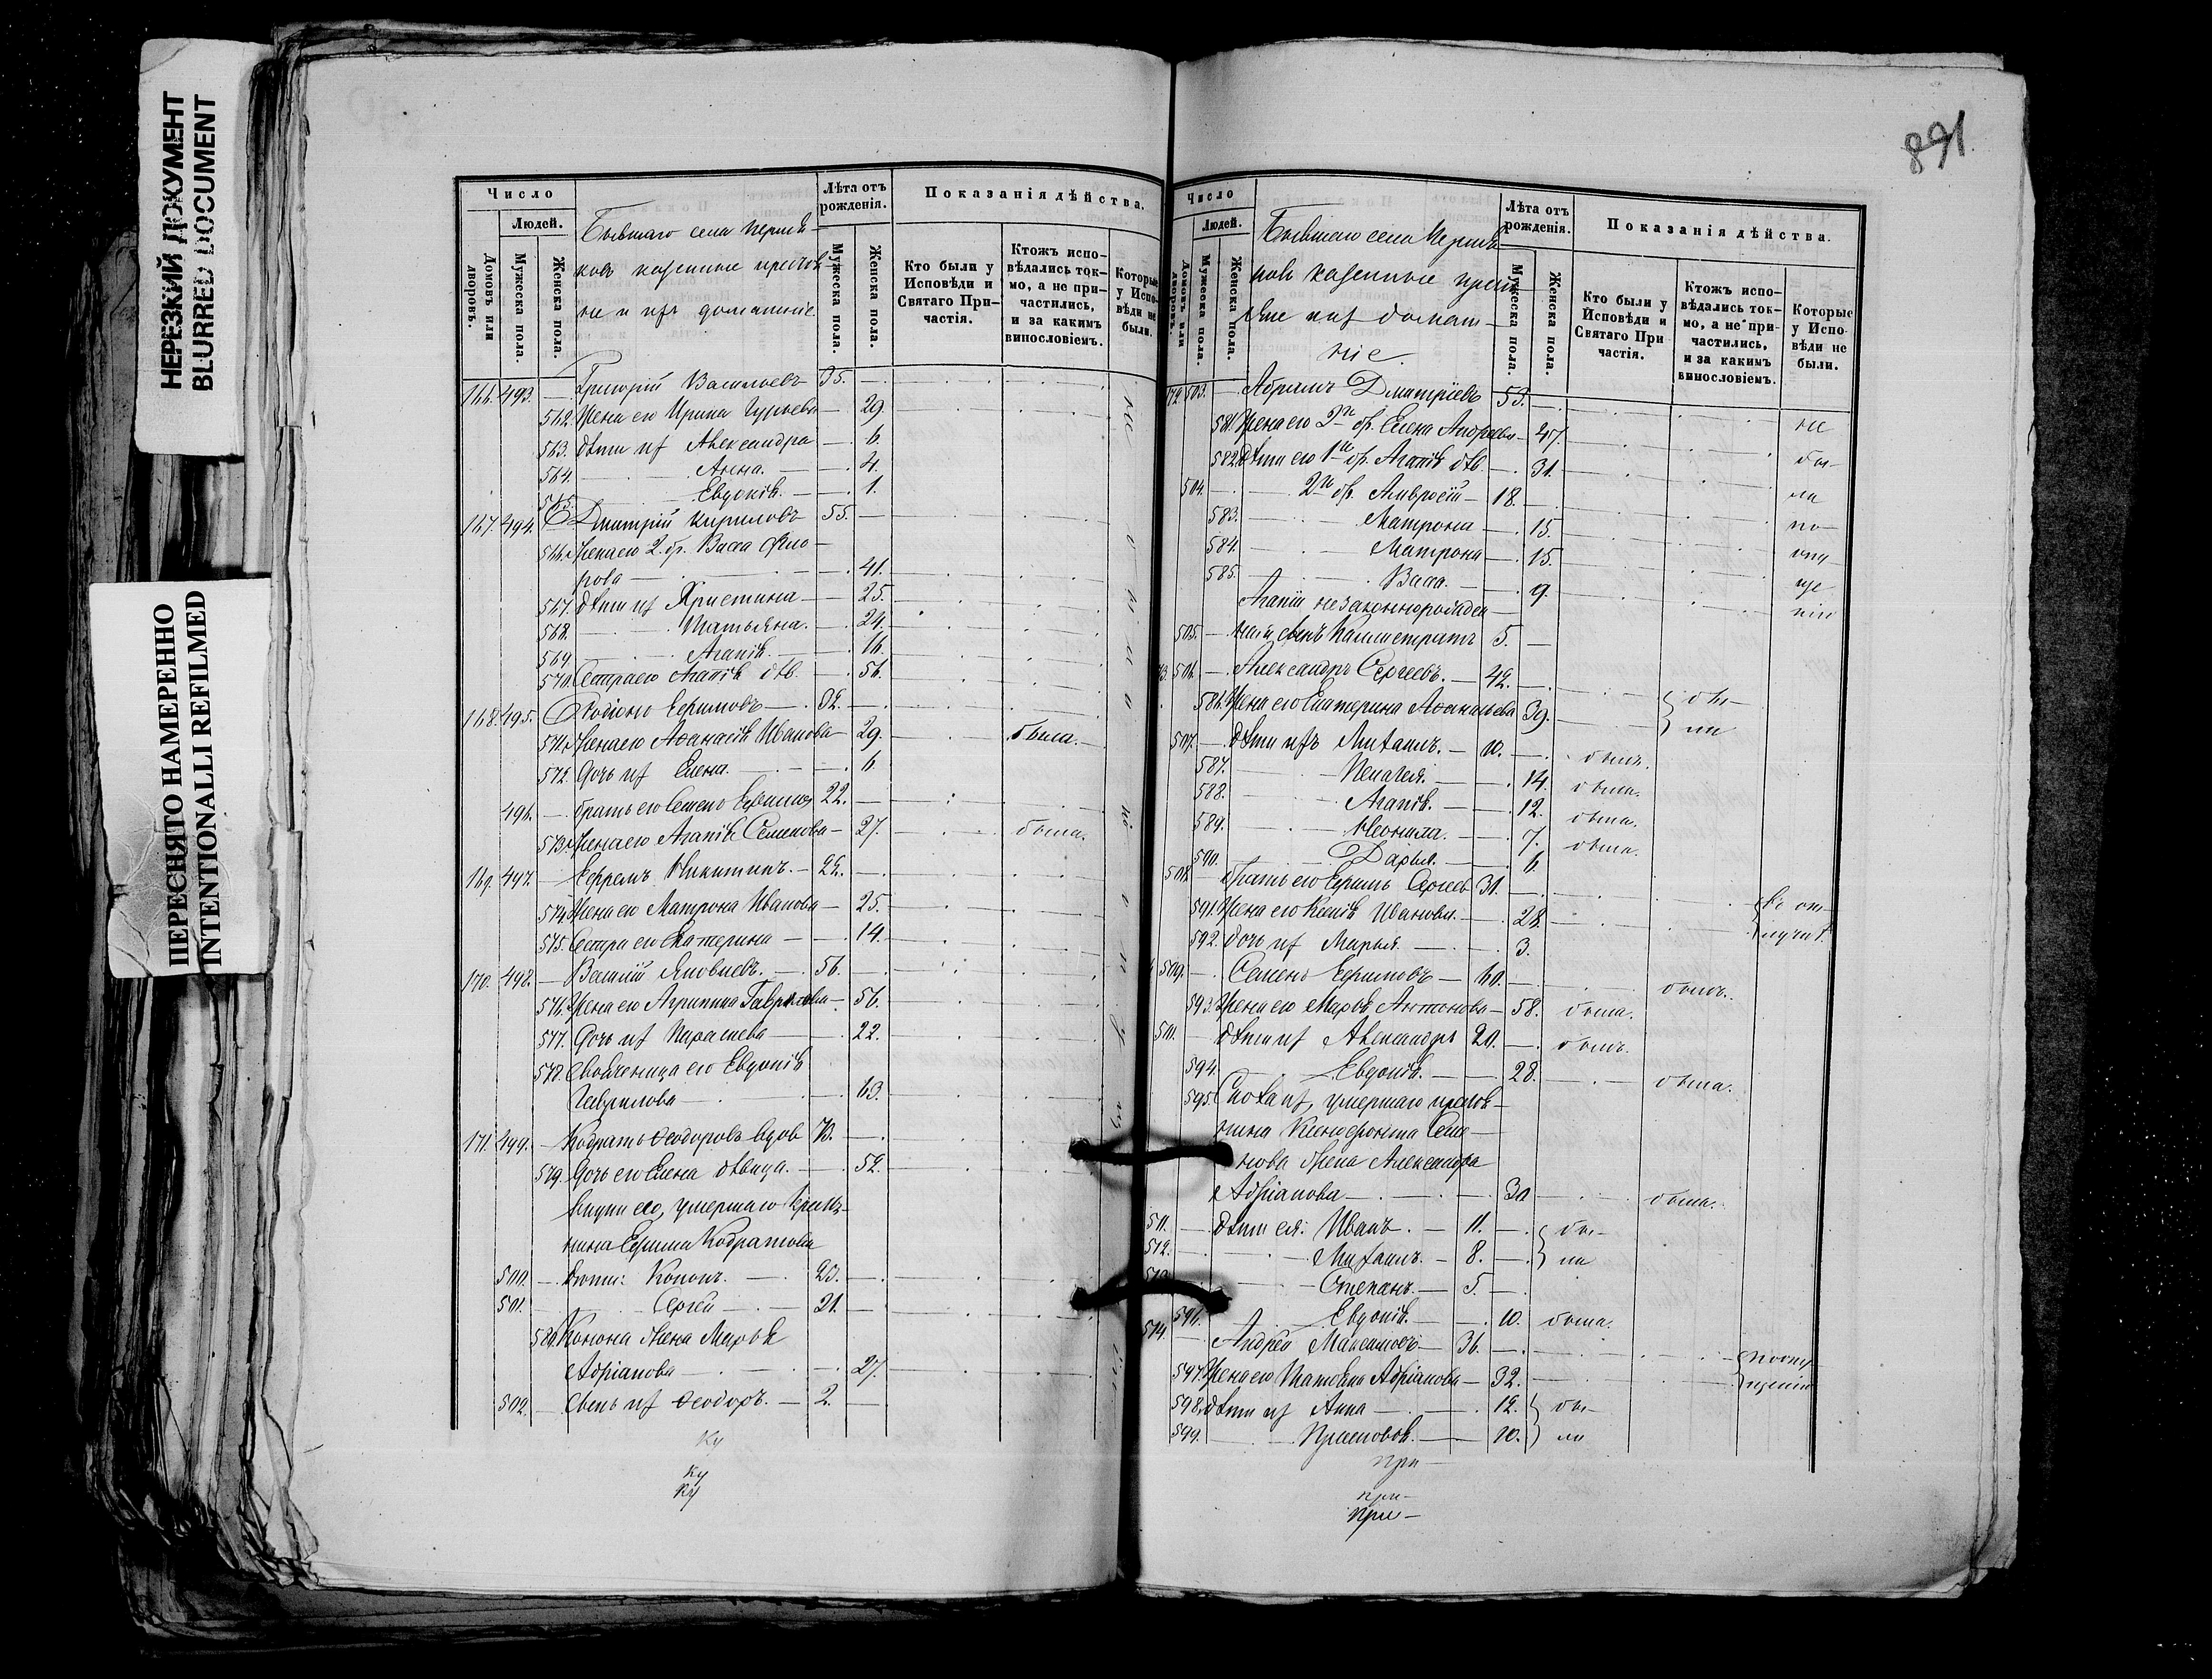 НЕРЕЗКИЙ ДОКУМЕНТ
BLURRED DOCUMENT
ПЕРЕСНЯТО НАМЕРЕННО
INTENTIONALLI REFILMED
891
Число
Людей.
Домовъ или дворовъ.
Мужеска пола.
Женска пола.
Бывшаго села
казенные
не и ихъ домашніе
Лѣта отъ рожденія.
Мужеска пола.
Женска пола.
Показанія дѣйства.
Кто были у Исповѣди и Святаго Причастія.
Ктожъ исповѣдались токмо, а не причастились, и за какимъ винословіемъ.
Которые у Исповѣди не были.
166. 493. — Григорій Васильевъ 35. —
562. Жена его Ирина Гурьева — 29.
563. дѣти их Александра — 6.
564. Анна. — 4.
565. Евдокія. — 1.
167. 494. Дмитрій Кириловъ 55. —
566. Жена его 2. бр. Васса
рова — 41.
567. дѣти их Христина — 25.
568. Татьяна. — 24.
569. Агапія. — 16.
570. Сестра его Агапія дѣв. — 56.
168. 495. Родіонъ Ефимовъ — 32. —
571. Жена его Аѳанасія Иванова — 29. была.
572. Дочь их Елена. — 6
496. — братъ его Семенъ Ефимов 22. —
573. Жена его Агапія Семенова — 27. была.
169. 497. — Ефремъ Никитинъ. — 25. —
574. Жена его Матрона Иванова — 25.
575. Сестра его Екатерина — 14.
170. 498. — Василій Яковлевъ. — 56. —
576. Жена его Агрипина Гаврилова — 56.
577. Дочь их Параскева — 22.
578. Свояченица его Евдокія
Гаврилова — 63.
171. 499. — Кодратъ Ѳеодоровъ вдов 73. —
579. Дочь его Елена дѣвица. — 52.
внуки его, умершаго
нина Ефима Кодратова
500. — дѣти: Кононъ. — 23. —
501. — Сергей — 21. —
580. Конона жена Марѳа
Адріанова — 27.
502. — сынъ их Ѳеодоръ. — 2. —
ку
ку
ку
Число
Людей.
Домовъ или дворовъ.
Мужеска пола.
Женска пола.
Бывшаго села
ковъ казенные
яне их домаш-
ніе.
Лѣта отъ рожденія.
Мужеска пола.
Женска пола.
Показанія дѣйства.
Кто были у Исповѣди и Святаго Причастія.
Ктожъ исповѣдались токмо, а не причастились, и за какимъ винословіемъ.
Которые у Исповѣди не были.
172. 503. — Абрамъ Дмитріевъ 53. —
581. Жена его 2й бр. Елена Андреева — 47. не
582. дѣти его 1го бр. Агапія дѣв. — 31. бы-
504. — 2й бр. Амвросій — 18. — ли
583. Матрона — 15. по
584. Матрона — 15. опу
585. Васса. — 9. ще
Агапіи незаконнорожден нію
505. — ный сынъ Калистратъ 5. —
506. — Александръ Сергеевъ. — 42. —
586. Жена его Екатерина Аѳанасьева 39. бы-
ли
507. — дѣти ихъ Михаилъ. — 10. — былъ.
587. Пелагея. — 14. была.
588. Агапія. — 12. была.
589. Неонила. — 7. была.
590. Дарья. — 6
508. братъ его Ефимъ Сергеев 31. — въ от-
591. Жена его Ксенія Иванова. — 28. лучкѣ
592. дочь их Марья. — 3.
509. — Семенъ Ефимовъ — 60. — былъ.
593. Жена его Марѳа Антонова — 58. была.
510. дѣти их Александръ 20. — былъ.
594. Евдокія. — 28. была.
595. Сноха их, умершаго
нина Ксенофонта Семе-
нова жена Александра
Адріанова — 30 была.
511. — дѣти ея: Иванъ. — 11. — бы-
512. — Михаилъ. — 8. — ли
513. Степанъ. — 5. —
596. Евдокія. — 10. была.
514. — Андрей Максимовъ — 36. — поопу-
597. Жена его Татьяна Адріанова — 32. щенію
598. дѣти их Анна — 12. бы-
599. — 10. ли
при-
при-
при-